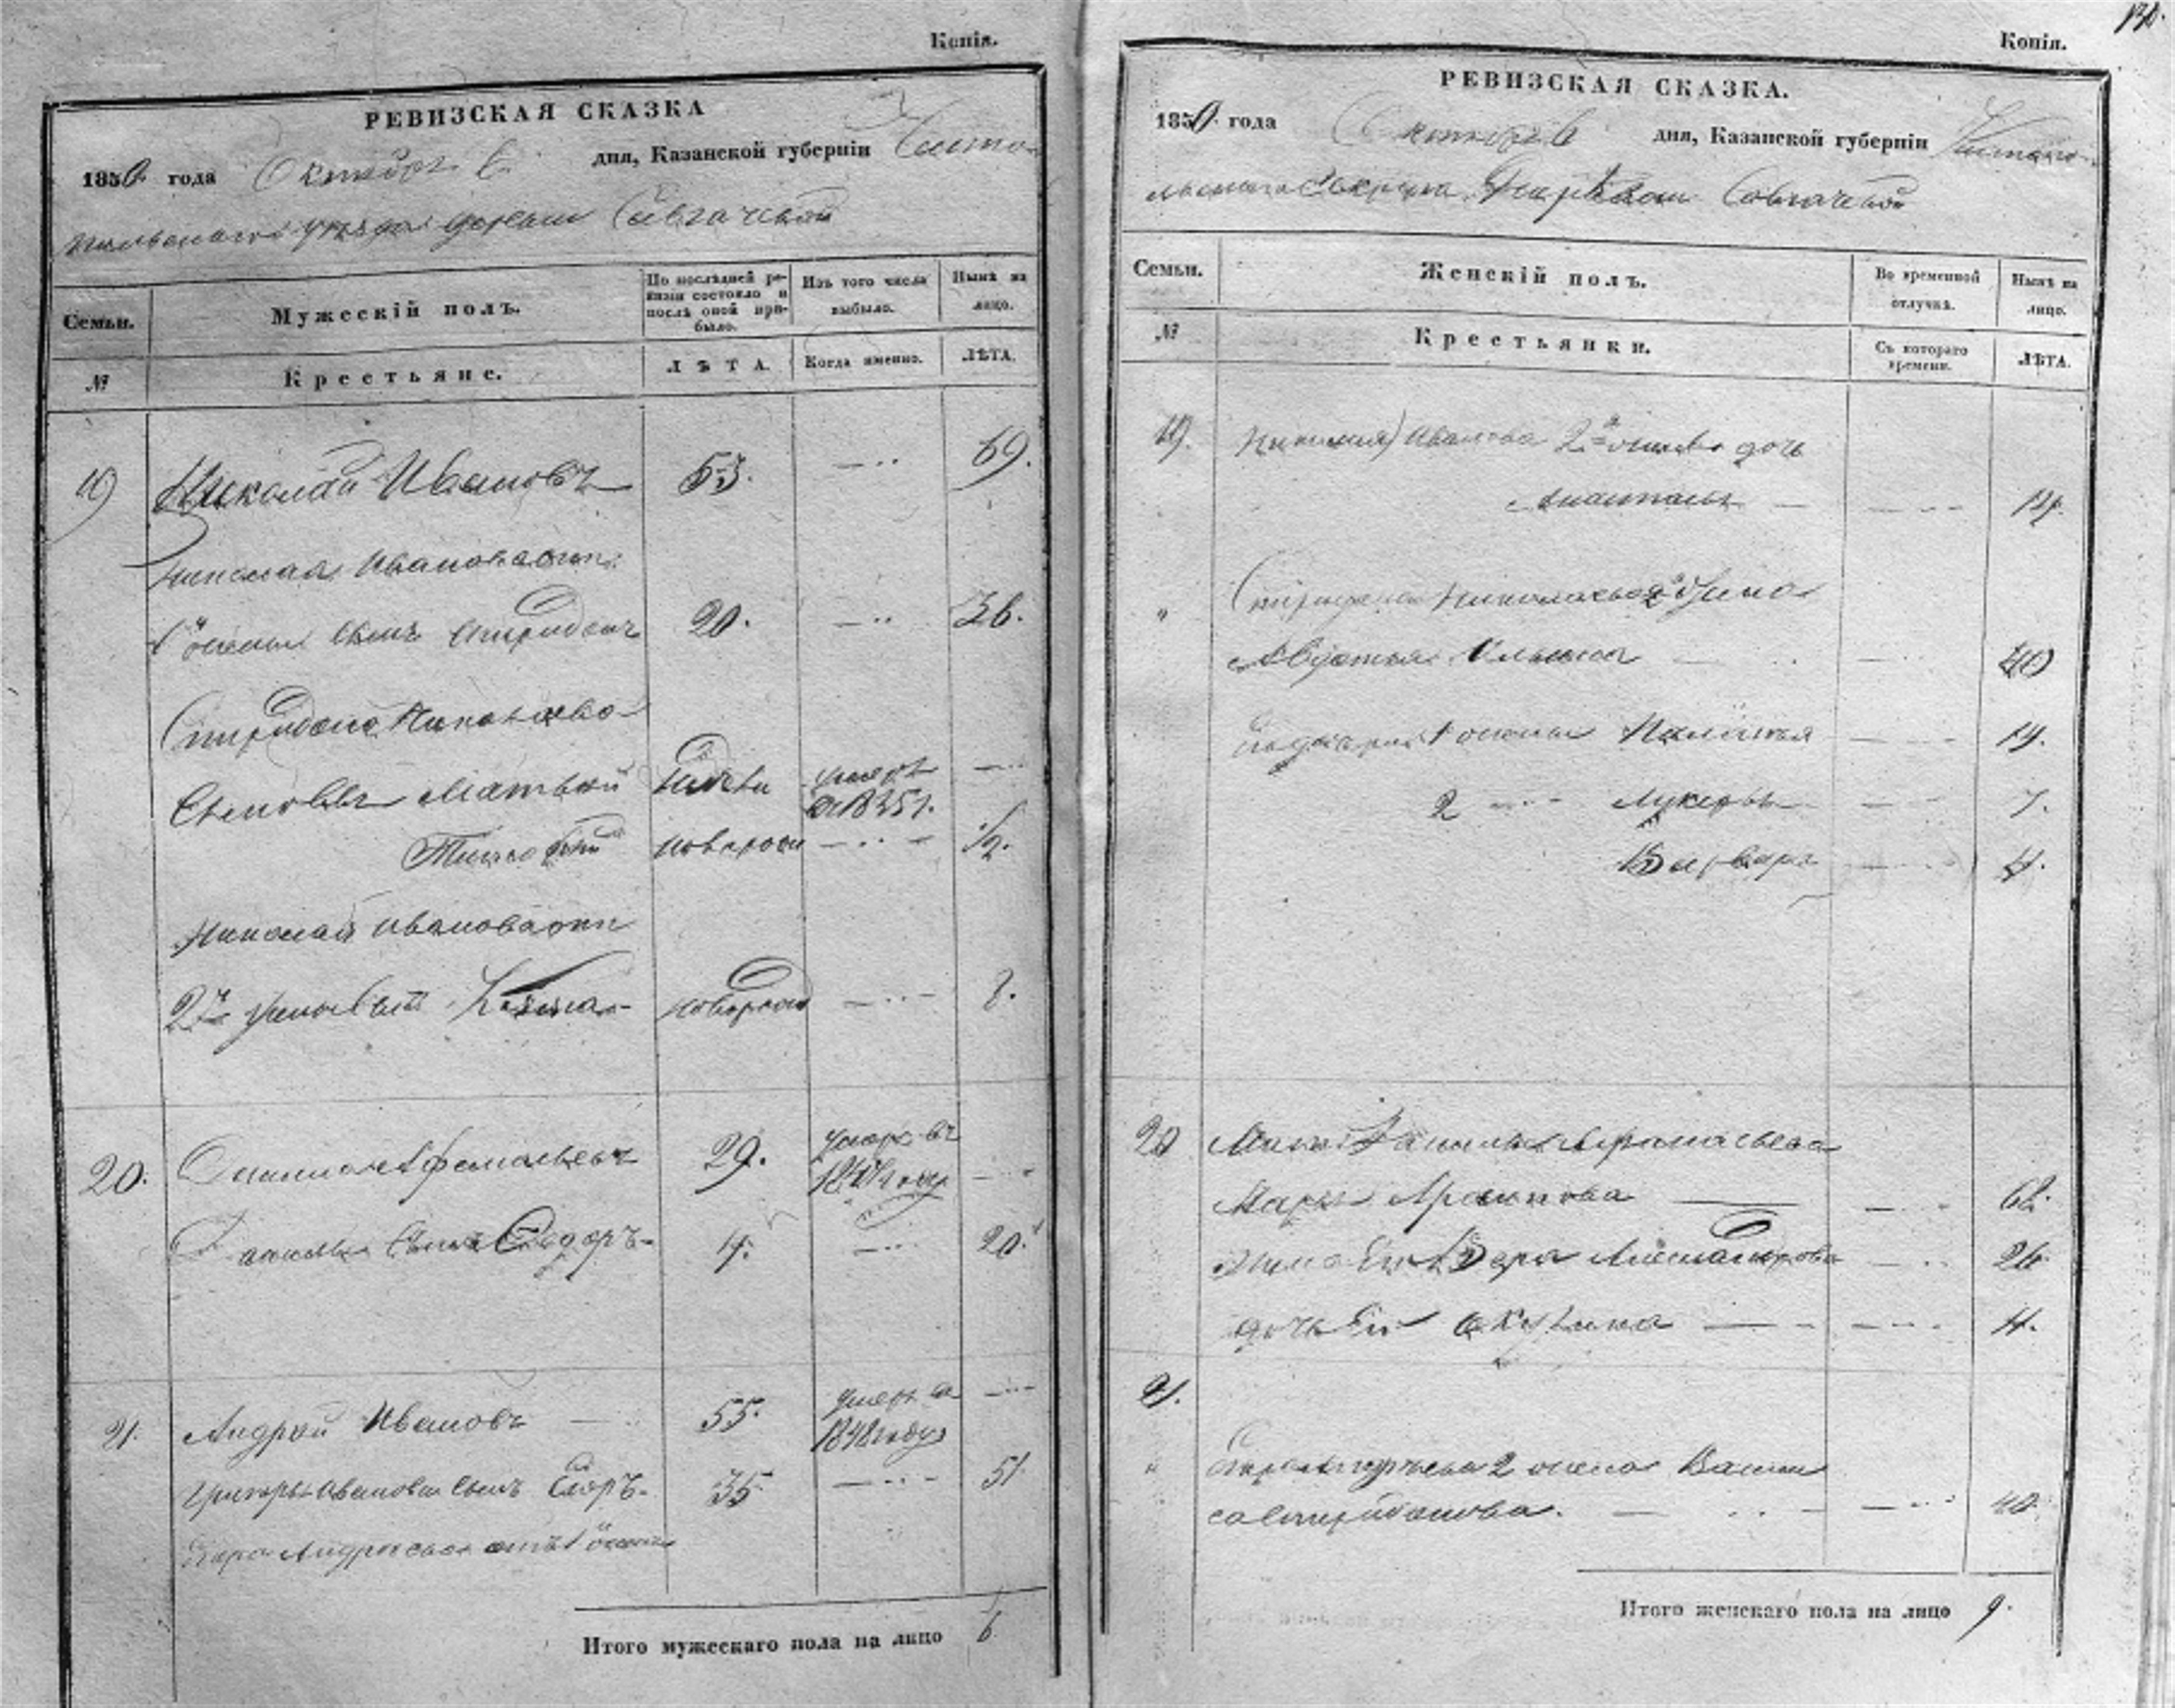 Копія.
РЕВИЗСКАЯ СКАЗКА
1850 года Октября 6 дня, Казанской губерніи Чисто-
польскаго уѣзда деревни Савгачевой
Семьи.
Мужескій полъ.
По послѣдней ре-
визіи состояло и
послѣ оной при-
было.
Изъ того числа
выбыло.
Нынѣ на
лицо.
№
Крестьяне.
ЛѢТА.
Когда именно.
ЛѢТА.
19 Николай Ивановъ 53. 69.
Николая Иванова отъ
1й жены сынъ Спиридонъ 20. 36.
Спиридона Николаева
сыновья Матвей умеръ
въ 1835 г.
Тимофей новорож 1/2.
Николая Иванова отъ
2й жены сынъ новорож 8.
20. Данила Афанасьевъ 29. умеръ въ
году
Данилы сынъ Сидоръ 4. 20.
21. Андрей Ивановъ 55. умеръ въ
1848 году
Иванова сынъ Егоръ 35 51
Егора Андреева отъ 1 жены
Итого мужескаго пола на лицо 6
Копія.
РЕВИЗСКАЯ СКАЗКА.
1850 года Октября 6 дня, Казанской губерніи Чистопо-
льскаго Деревни Савгачевой
Семьи.
Женскій полъ.
Во временной
отлучкѣ.
Нынѣ на
лицо.
№
Крестьянки.
Съ котораго
времени.
ЛѢТА.
19. Николая Иванова 2й жены дочь
Анастасья
" Спиридона Николаева 2 жена
Авдотья Ильина 40
1 жены 19.
2 Лукерья 7.
Варвара 4.
20 Мать Данилы Афанасьева
Марья Архипова 62.
жена его Александрова 26.
дочь его Акулина 4.
21.
Егора Андреева 2 жена Васили
са Спиридонова. 40.
Итого женскаго пола на лицо 9.